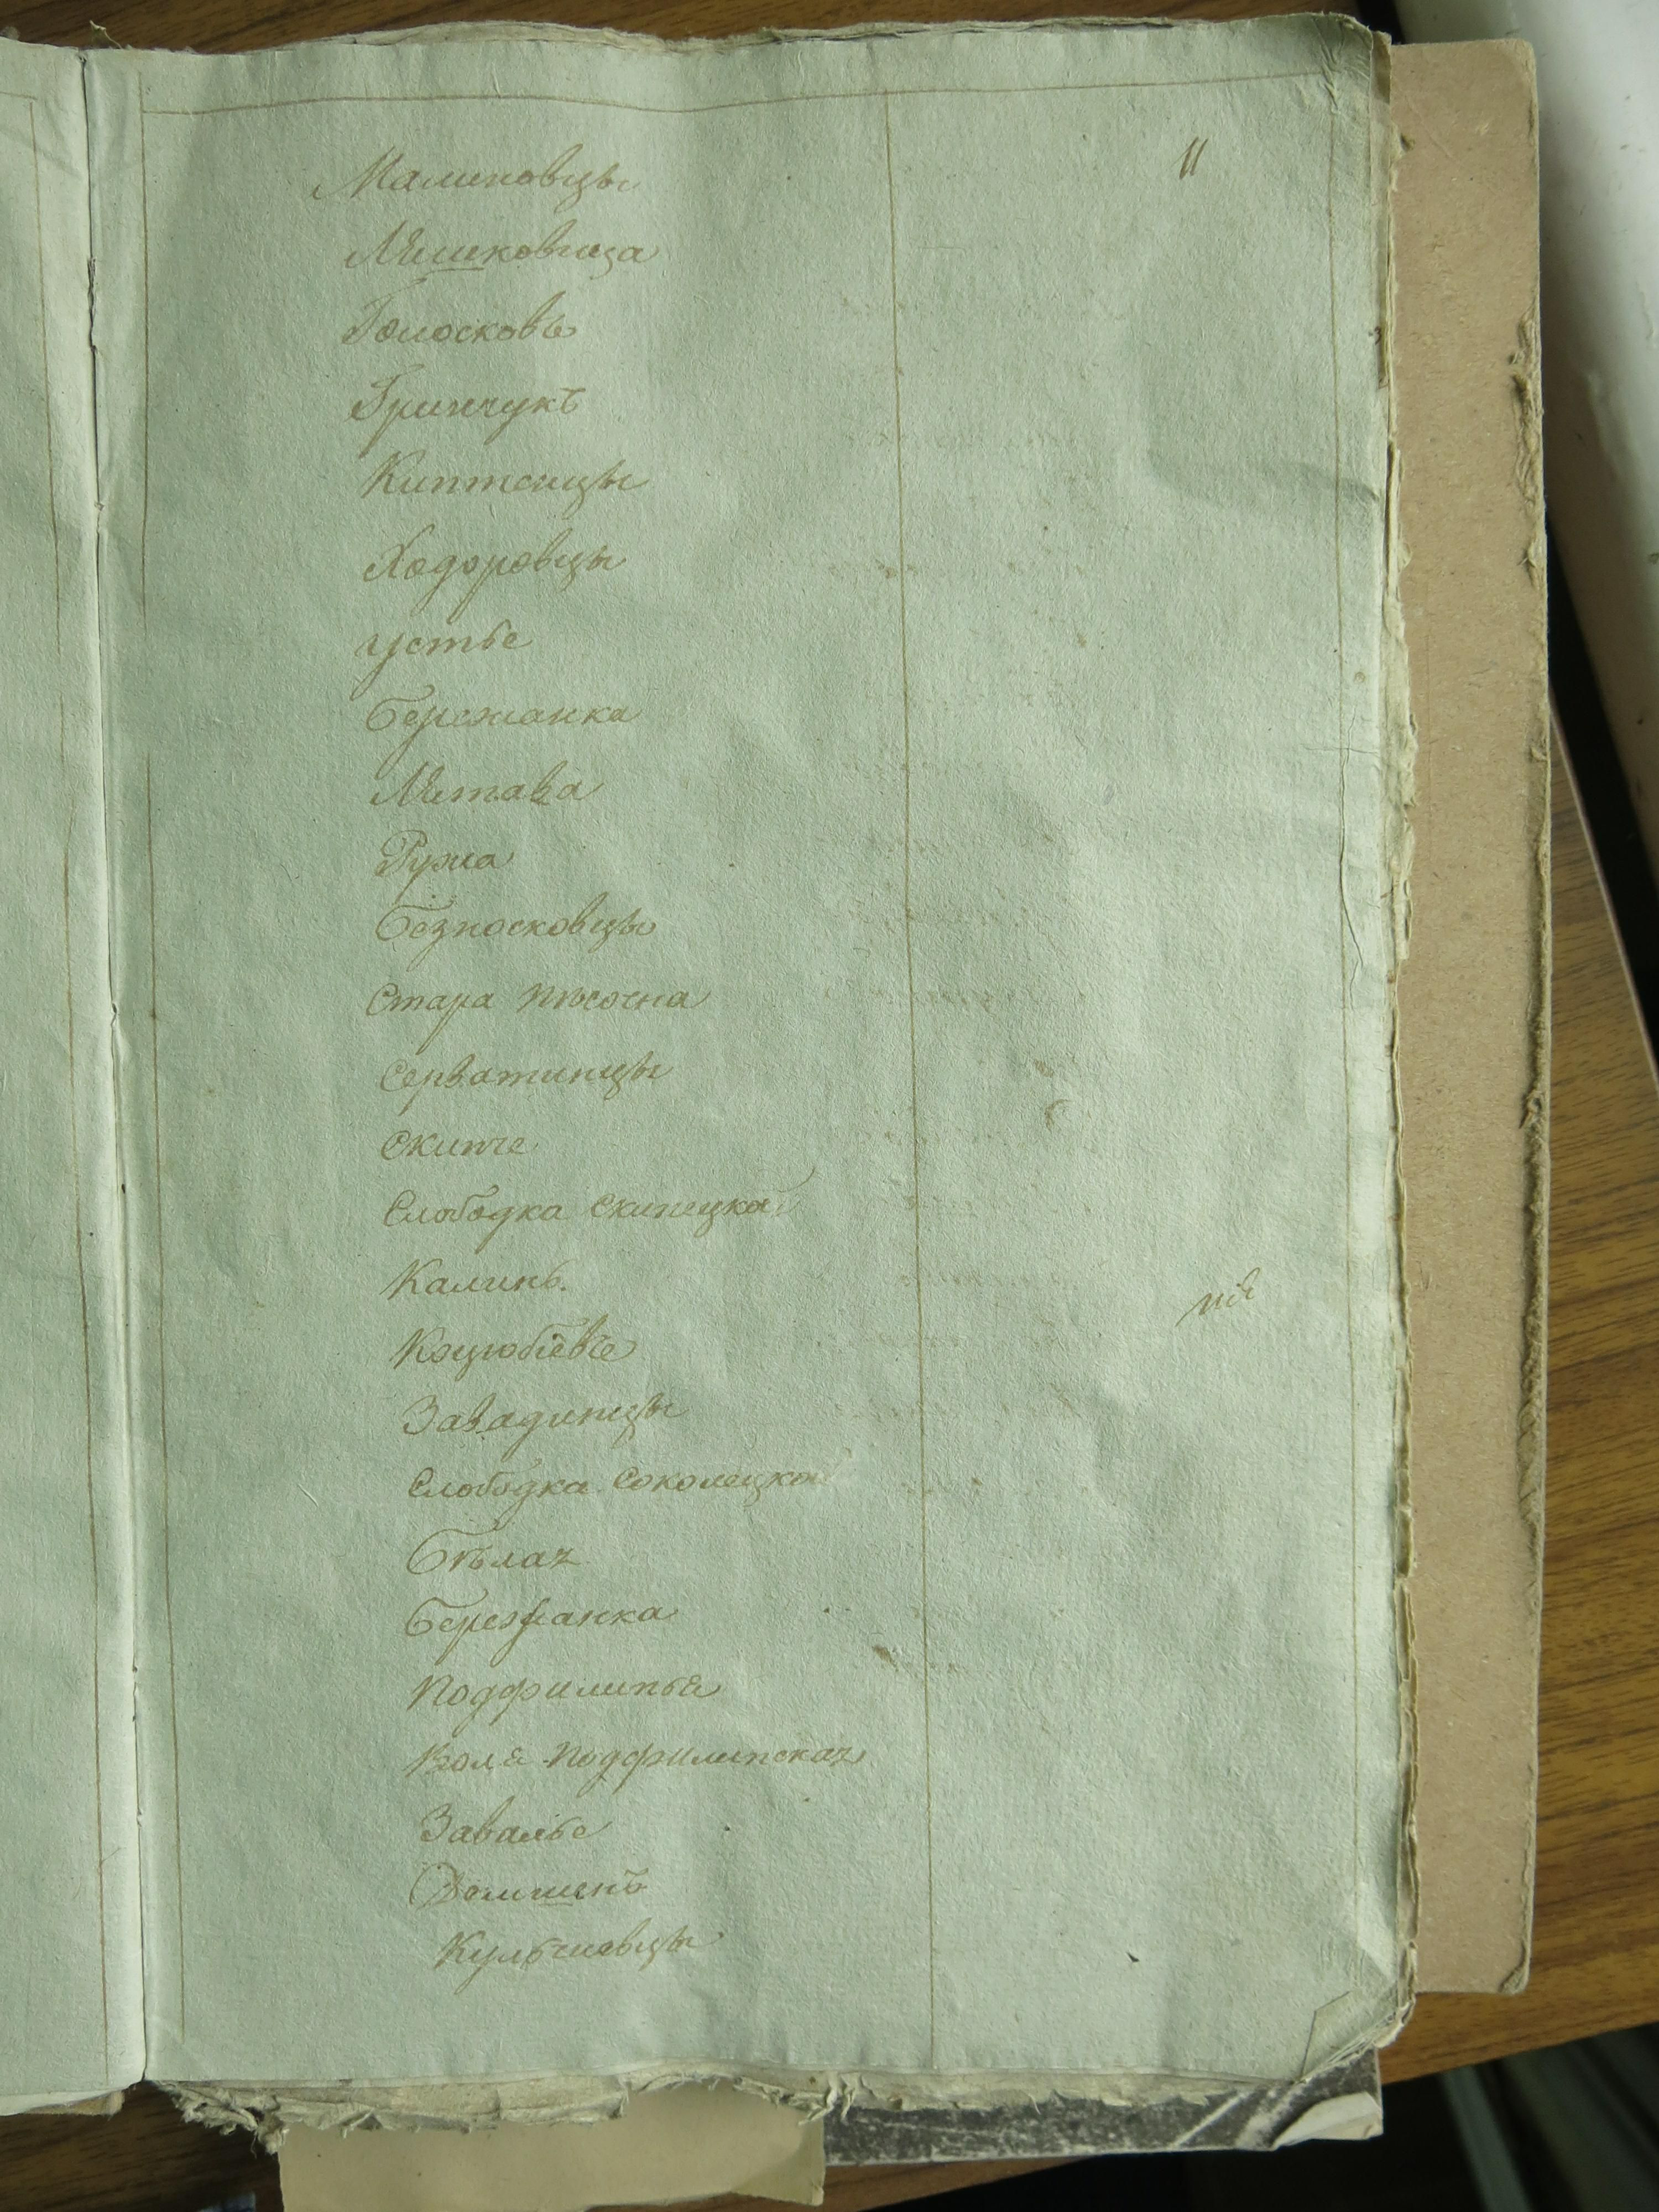 Малиновцы
11
Мишковица
Голосковъ
Гринчукъ
Киптинцы
Ходоровцы
Устье
Бережанка
Митава
Ружа
Безносковцы
Стара Пѣсочна
Серватинцы
Скипче
Слободка Скипецкая
Калинь.
Коцюбіевъ
Завадинцы
Слободка Соколецкая
Бѣлая
Бережанка
Подфилипье
Воля Подфилипская
Завалье
Кульчіовцы